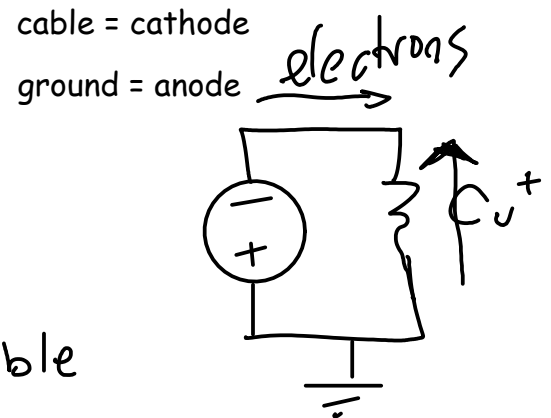 cable = cathode
ground = anode
electrons
−
+
Cu+
ble